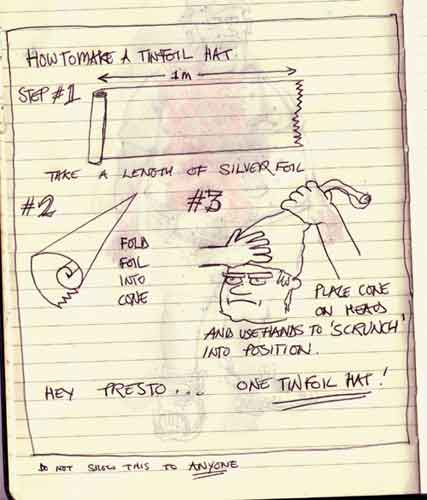 HOW TO MAKE A TINFOIL HAT.
1m
STEP #1
TAKE A LENGTH OF SILVER FOIL
#2
#3
FOLD
FOIL
INTO
CONE
PLACE CONE
ON HEAD
AND USE HANDS TO 'SCRUNCH'
INTO POSITION.
HEY PRESTO... ONE TINFOIL HAT!
DO NOT SHOW THIS TO ANYONE